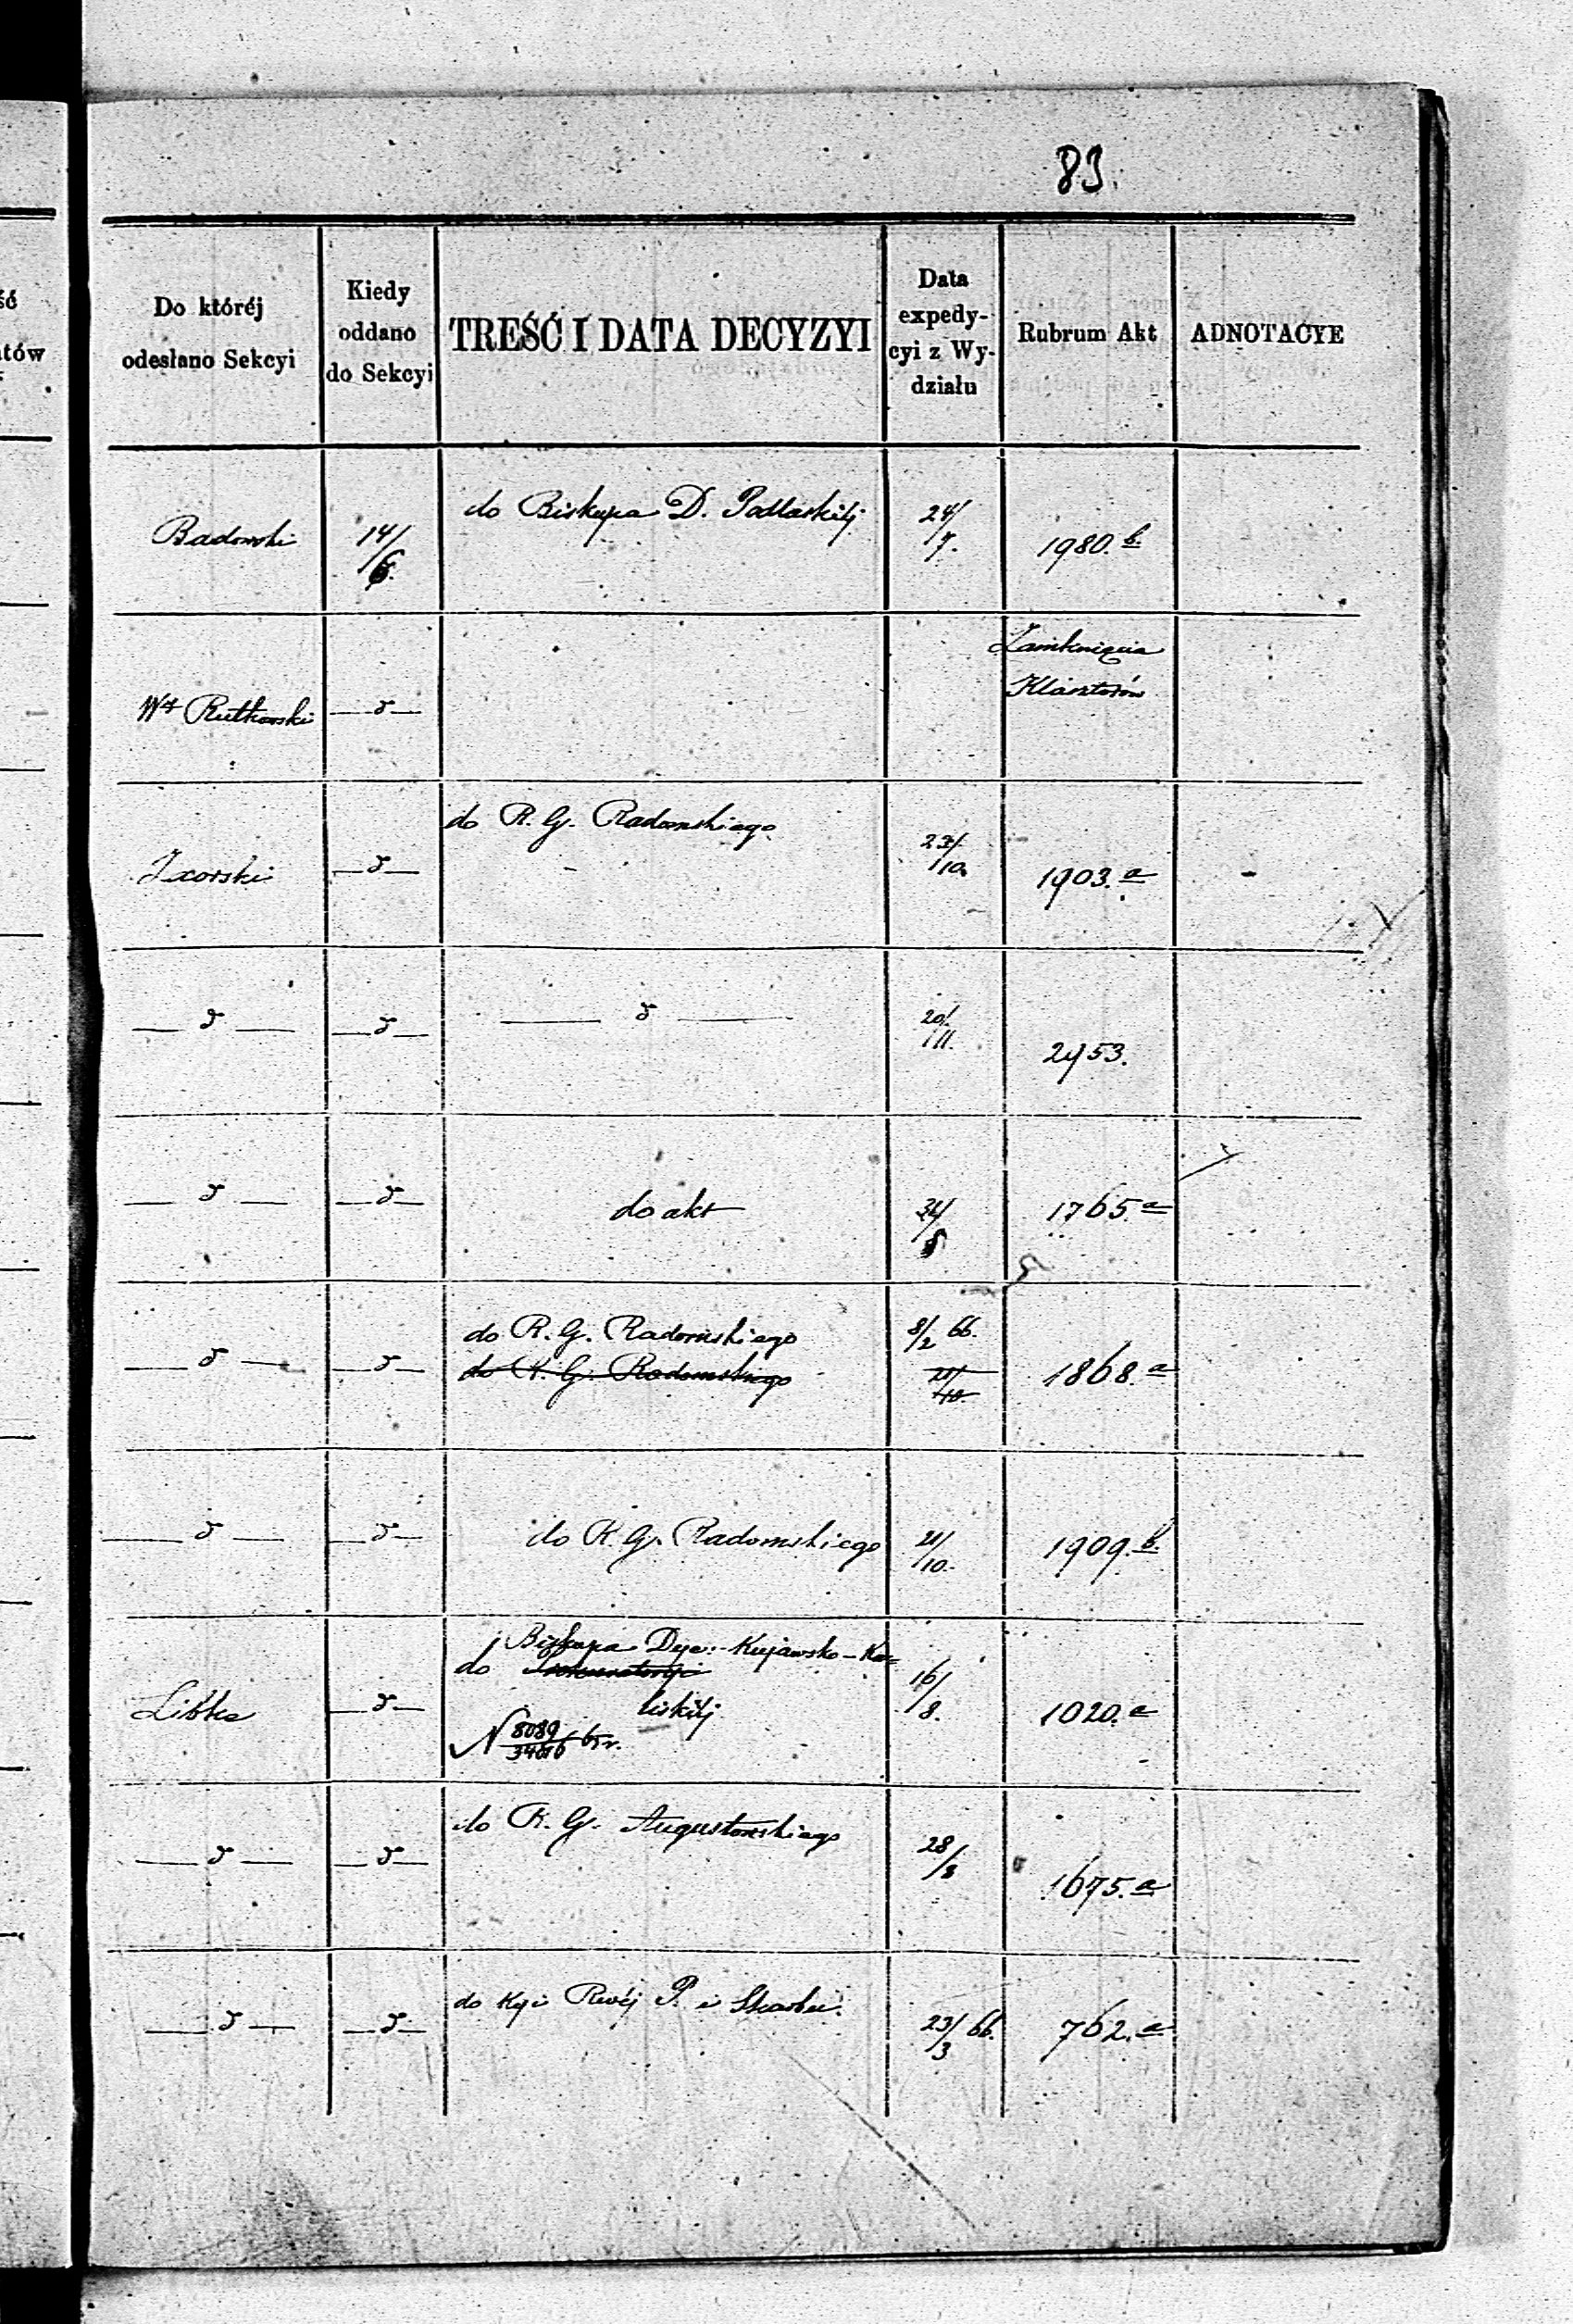 83.
ść
tów
Do któréj
odesłano Sekcyi
Kiedy
oddano
do Sekcyi
TREŚĆ I DATA DECYZYI
Data
expedy-
cyi z Wy-
działu
Rubrum Akt
ADNOTACYE
Badowski 14/6. do Biskupa D. Podlaskiéj 24/7. 1980.b.
Wł Rutkowski —d— Zamknięcia
Klasztorów
Ixorski —d— do R. G. Radomskiego 23/10 1903.a
—d— —d— —d— 20/11. 2953.
—d— —d— do akt 1765.a
—d— —d— do R. G. Radomskiego 8/2 66. 1868.a
do R. G. Radomskiego 21/10.
—d— —d— do R. G. Radomskiego 21/10. 1909.b.
Biskupa Dyec: Kujawsko-Ka=
Libke —d— do 16/8. 1020.a
liskiéj
N 8089/34616 65 r.
—d— —d— do R. G. Augustowskiego 28/8 1675.a
—d— —d— do Kyi Rwéj P. i Skarbu. 23/3 66. 762.a